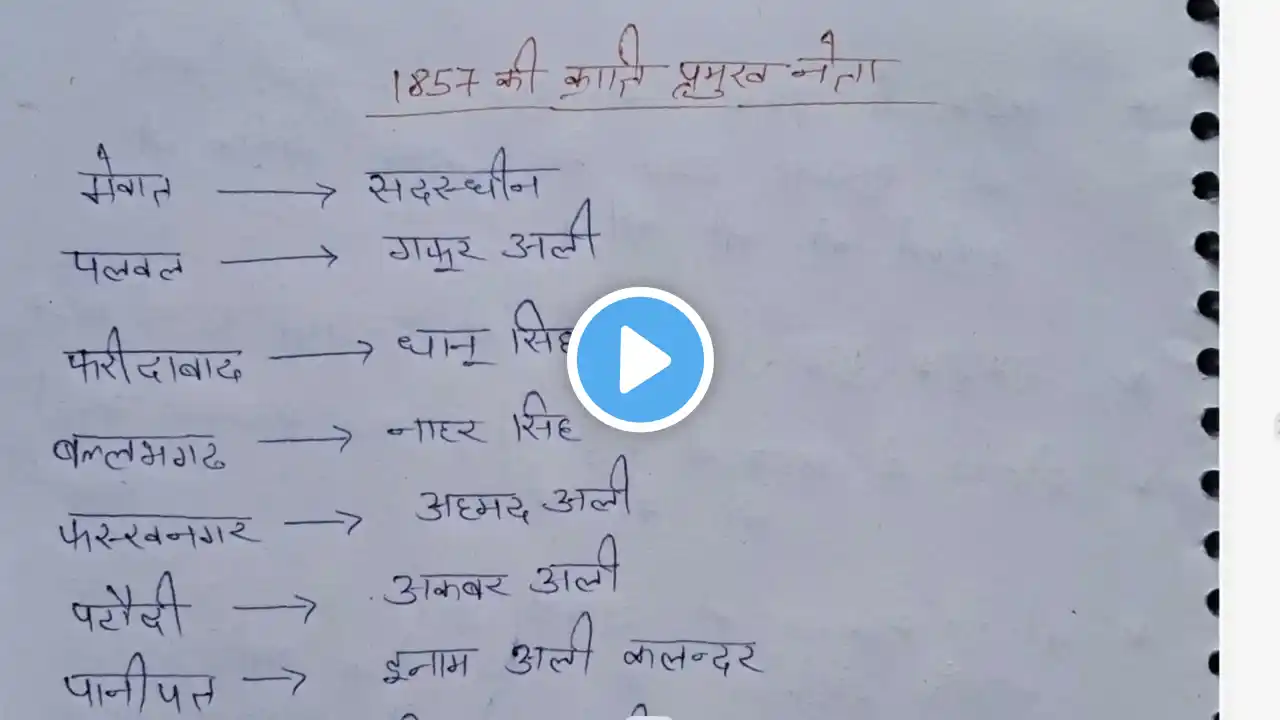 1857 की क्राति प्रमुख नेता
मेवात → सदरुधीन
पलवल → गफूर अली
फरीदाबाद → धानू सिंह
बल्लभगढ → नाहर सिंह
फरुखनगर → अहमद अली
पटौदी → अकबर अली
पानीपत → इनाम अली कलन्दर